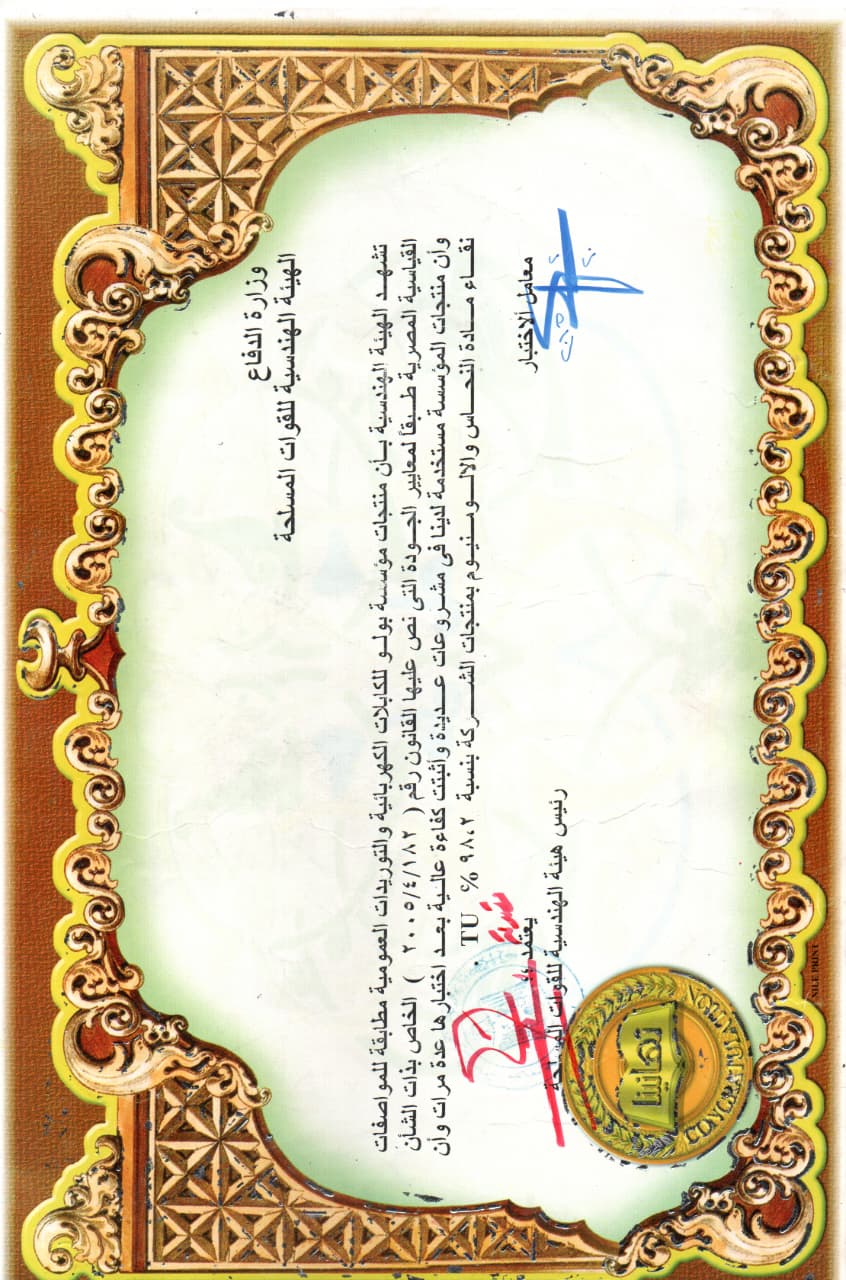 وزارة الدفاع
الهيئة الهندسية للقوات المسلحة
تشهد الهيئة الهندسية بأن منتجات مؤسسة بولو للكابلات الكهربائية والتوريدات العمومية مطابقة للمواصفات
القياسية المصرية طبقاً لمعايير الجودة التى نص عليها القانون رقم ( ٢٠٠٥/٤/١٨٢ ) الخاص بذات الشأن
وأن منتجات المؤسسة مستخدمة لدينا فى مشروعات عديدة وأثبتت كفاءة عالية بعد اختبارها عدة مرات وأن
نقاء مادة النحاس والالومنيوم بمنتجات الشركة بنسبة ٩٨،٢ % TU
معامل الاختبار
يعتمد
رئيس هيئة الهندسية للقوات المسلحة
تهانينا
CONGRATULATION
NILE PRINT